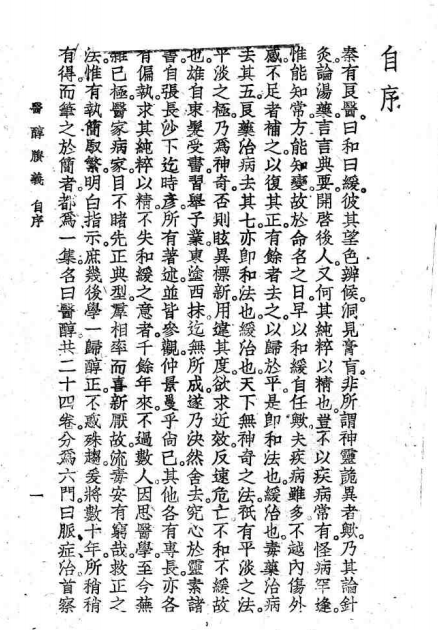 自序
秦有良醫曰和曰緩。彼其望色辨候。洞見膏肓。非所謂神靈詭異者歟。乃其論針
灸。論湯藥。言言典要。開啓後人。又何其純粹以精也。豈不以疾病常有。怪病罕逢。
惟能知常。方能知變。故於命名之日。早以和緩自任歟。夫疾病雖多。不越內傷外
感。不足者補之。以復其正。有餘者去之。以歸於平。是卽和法也。緩治也。毒藥治病
去其五。良藥治病去其七。亦卽和法也。緩治也。天下無神奇之法。祇有平淡之法。
平淡之極。乃爲神奇。否則眩異標新。用違其度。欲求近效。反速危亡。不和不緩故
也。雄自束髮受書。習舉子業。東塗西抹。迄無所成。遂乃決然舍去。究心於靈素諸
書。自張長沙下迄時彥。所有著述。並皆參觀。仲景夐乎尙已。其他各有專長。亦各
有偏執。求其純粹以精。不失和緩之意者。千餘年來。不過數人。因思醫學至今。蕪
雜已極。醫家病家。目不睹先正典型。羣相率而喜新厭故。流毒安有窮哉。救正之
法。惟有執簡馭繁。明白指示。庶幾後學一歸醇正。不惑殊趨。爰將數十年所稍稍
有得。而筆之於簡者。都爲一集。名曰醫醇。共二十四卷。分爲六門。曰脈症治。首察
醫醇賸義 自序
一